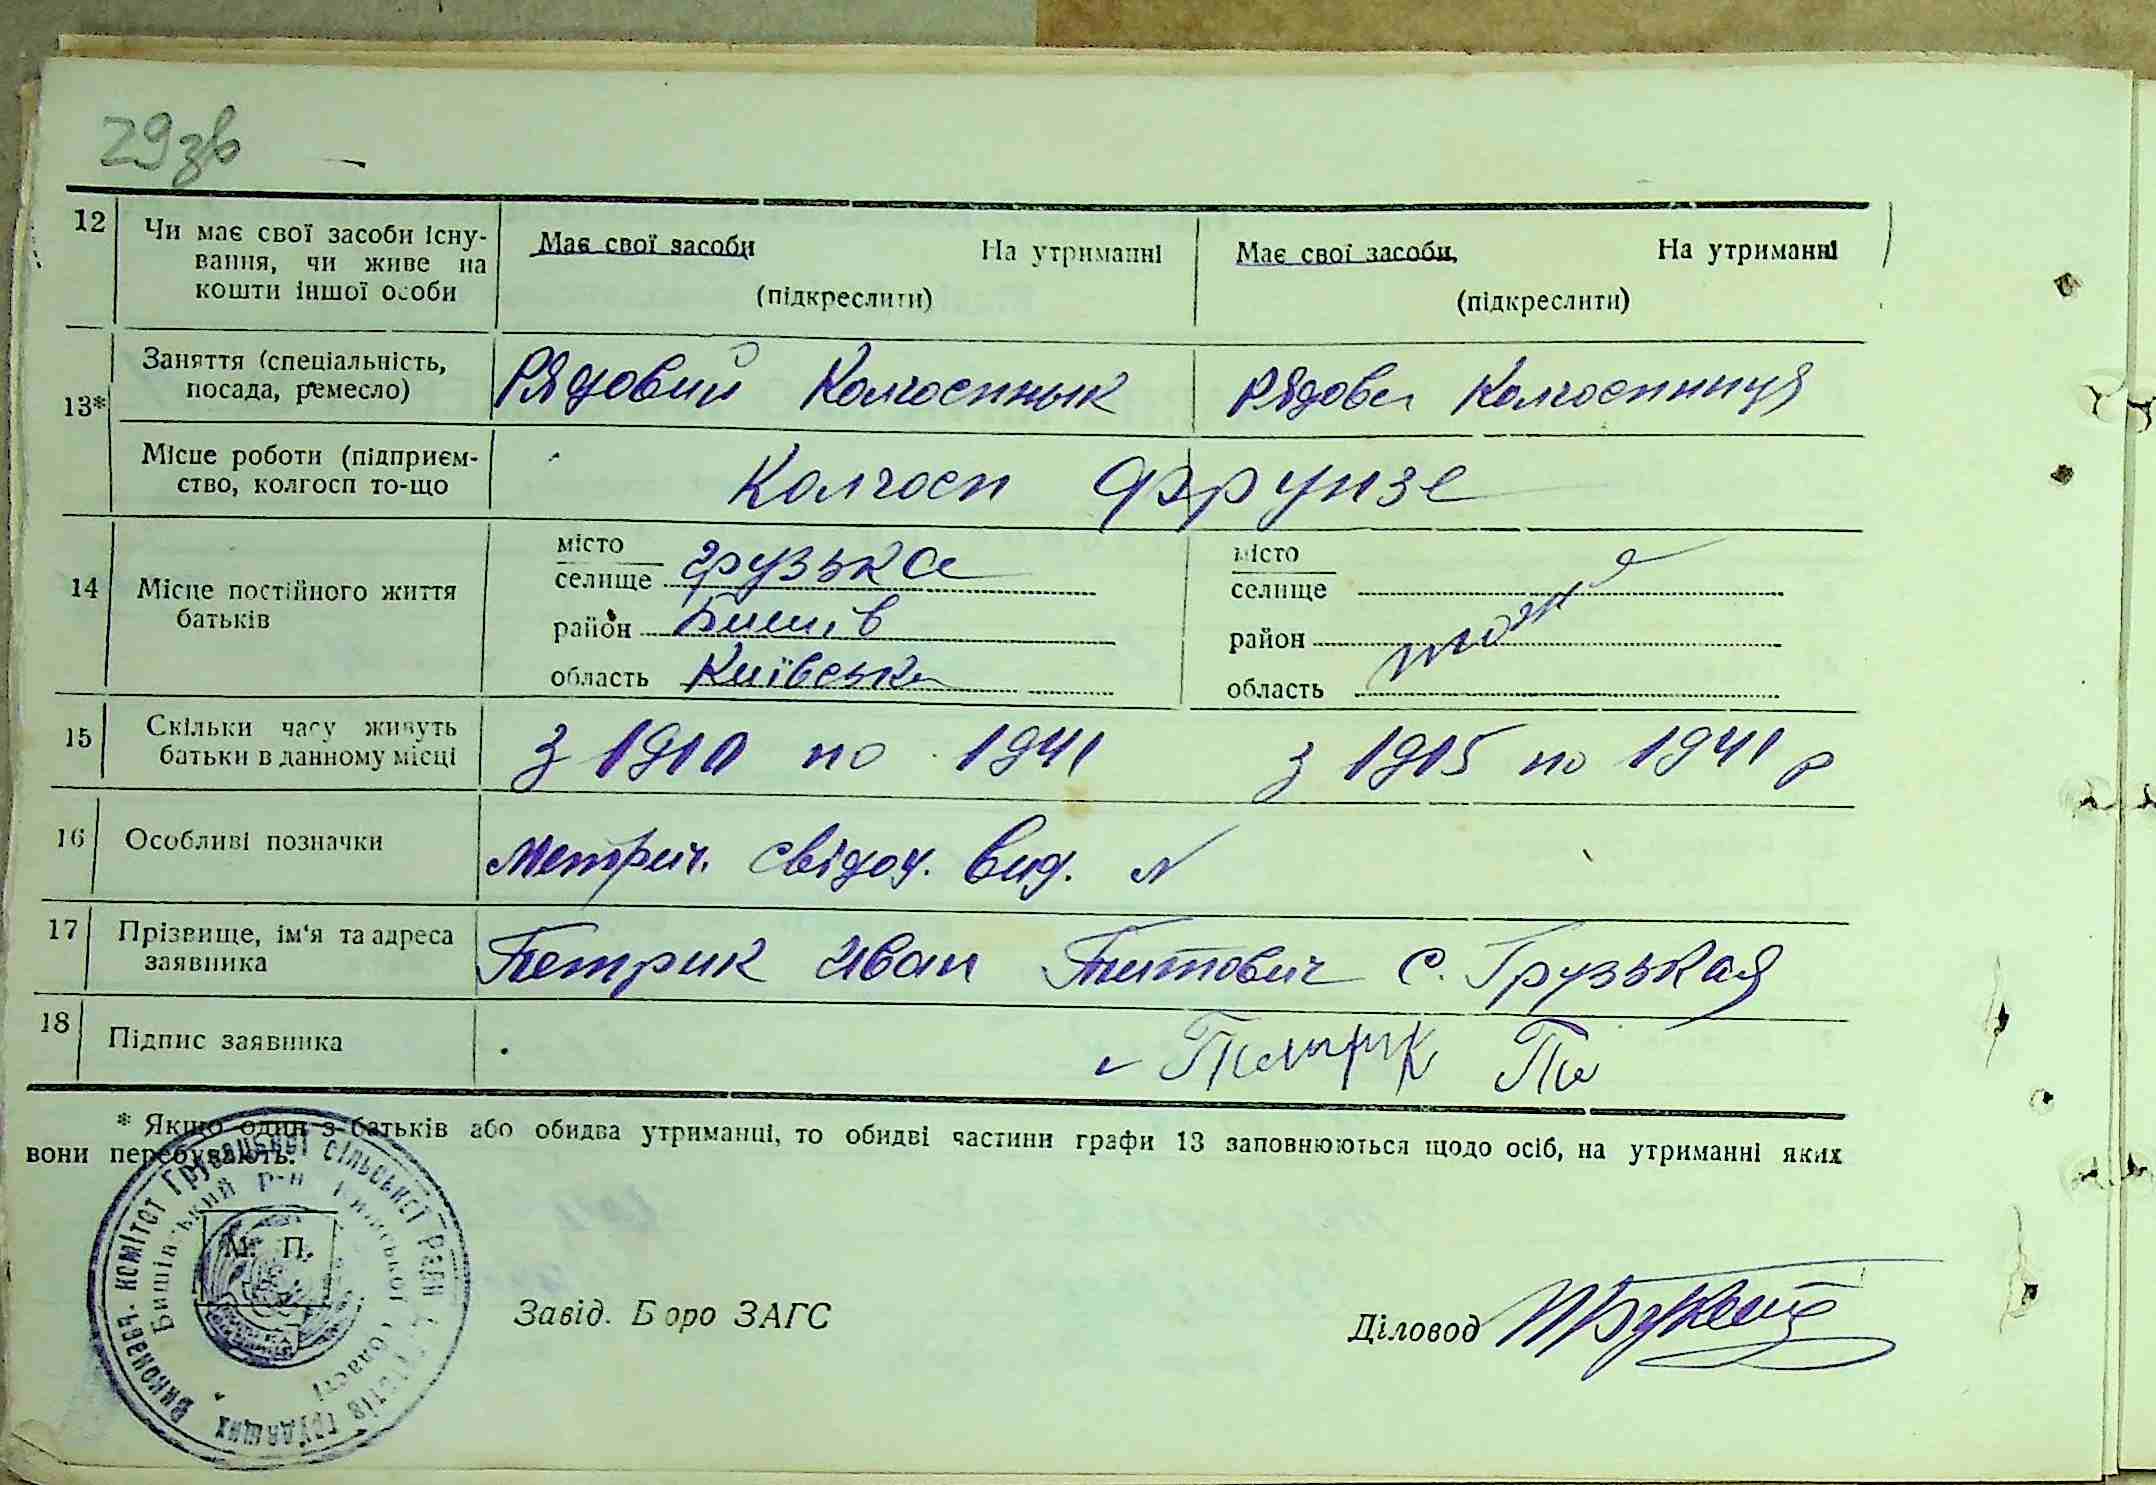 29зв
12 Чи має свої засоби існу-
вання, чи живе на
кошти іншої особи
Має свої засоби На утриманні
(підкреслити)
Має свої засоби, На утриманні
(підкреслити)
13* Заняття (спеціальність,
посада, ремесло)
Рядовий Колгоспнык
Рядова Колгоспниця
Місце роботи (підприєм-
ство, колгосп то-що
Колгосп Фрунзе
14 Місце постійного життя
батьків
місто
селище Грузька
район Бишів
область Київська
місто
селище
район
область
тоже
15 Скільки часу живуть
батьки в данному місці
З 1910 по 1941
з 1915 по 1941 р
16 Особливі позначки
Метрич. свідоц. вид. N
17 Прізвище, ім'я та адреса
заявника
Петрик Иван Титович С. Грузькая
18 Підпис заявника
Петрик
* Якщо один з батьків або обидва утриманці, то обидві частини графи 13 заповнюються щодо осіб, на утриманні яких
вони перебувають.
Виконавч. комітот Грузької сільської Ради депутатів трудящих
Бишівський р-н Київської області
М. П.
Завід. Бюро ЗАГС
Діловод